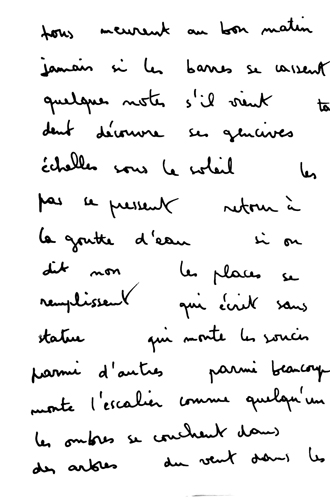 tous meurent au bon matin
jamais si les barres se cassent
quelques notes s'il vient
dent découvre ses gencives
échelles sous le soleil les
pas se pressent retour à
la goutte d'eau si on
dit non les places se
remplissent qui écrit sans
statue qui monte les soucis
parmi d'autres parmi beaucoup
monte l'escalier comme quelqu'un
les ombres se couchent dans
des arbres du vent dans les